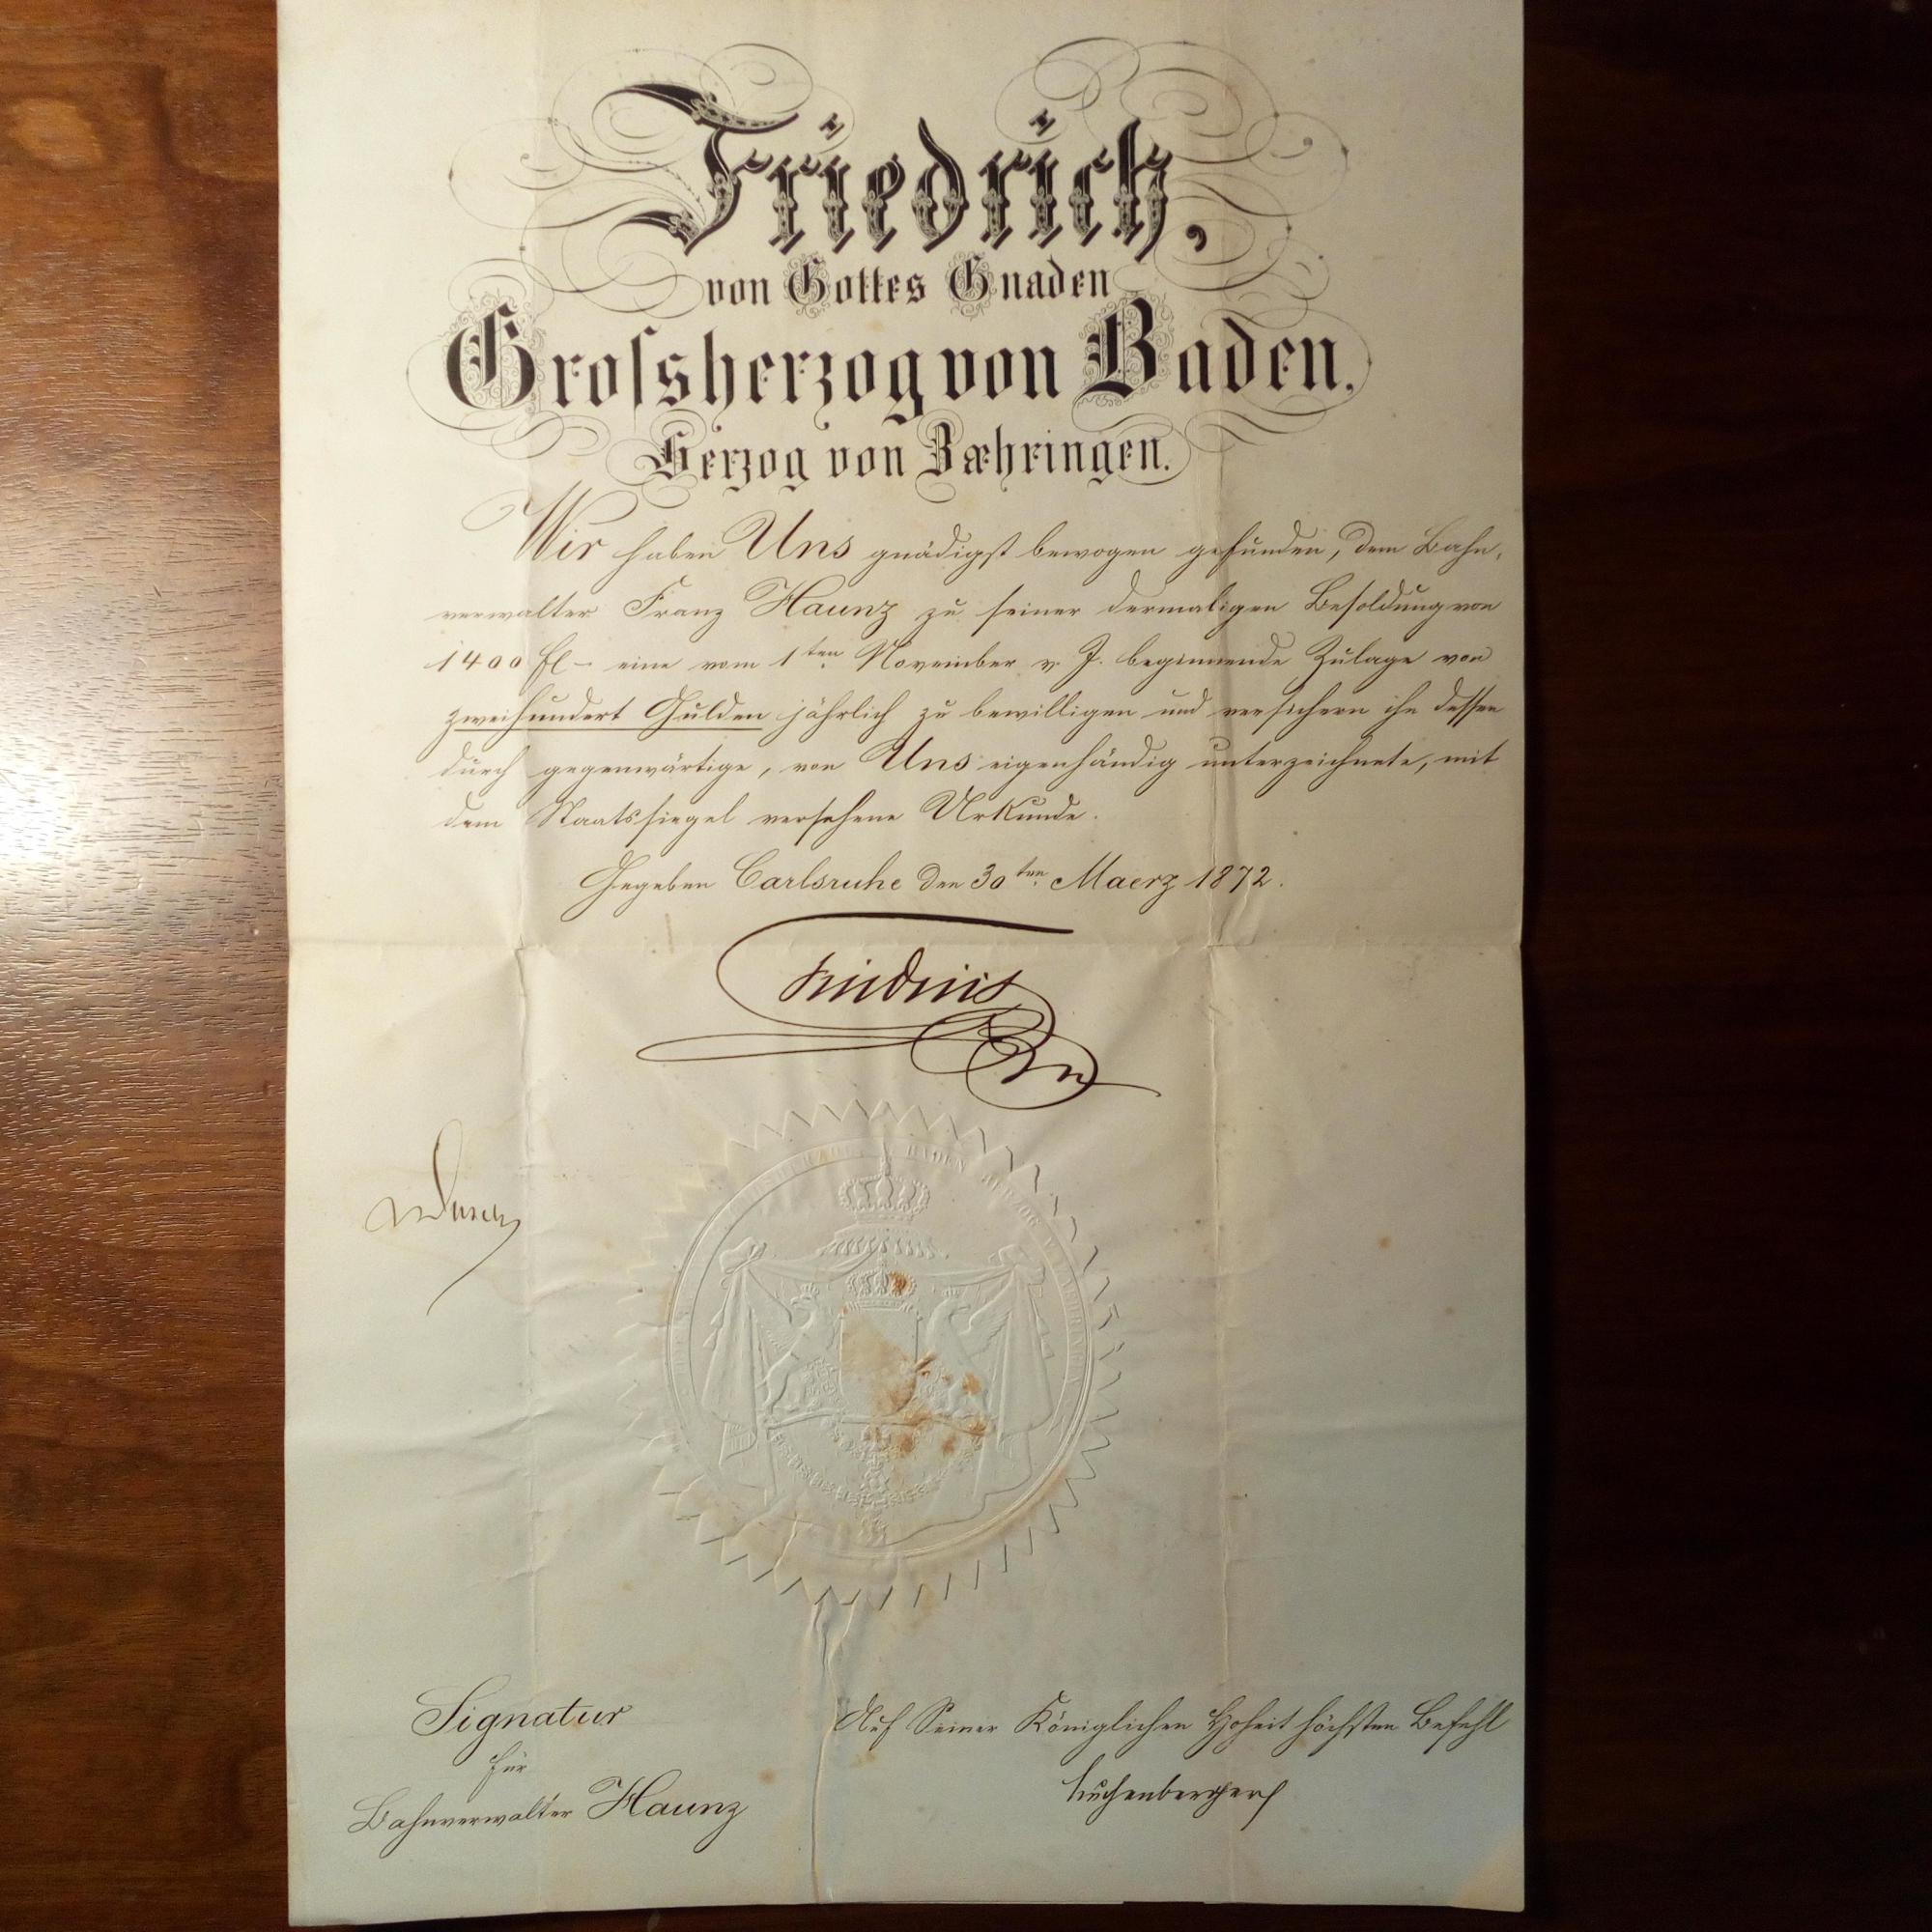 Friedrich,
von Gottes Gnaden
Grossherzog von Baden,
Herzog von Zæhringen.
Wir haben Uns gnädigst bewogen gefunden, dem Bahn-
verwalter Franz Haunz zu seiner dermaligen Besoldung von
1400 fl- eine vom 1ten November v. J. beginnende Zulage von
zweihundert Gulden jährlich zu bewilligen und versichern ihn dessen
durch gegenwärtige, von Uns eigenhändig unterzeichnete, mit
dem Staatssiegel versehene Urkunde.
Gegeben Carlsruhe den 30ten Maerz 1872.
Friedrich
BADEN HERZOG
Signatur
für
Bahnverwalter Haunz
Auf Seiner Königlichen Hoheit höchsten Befehl